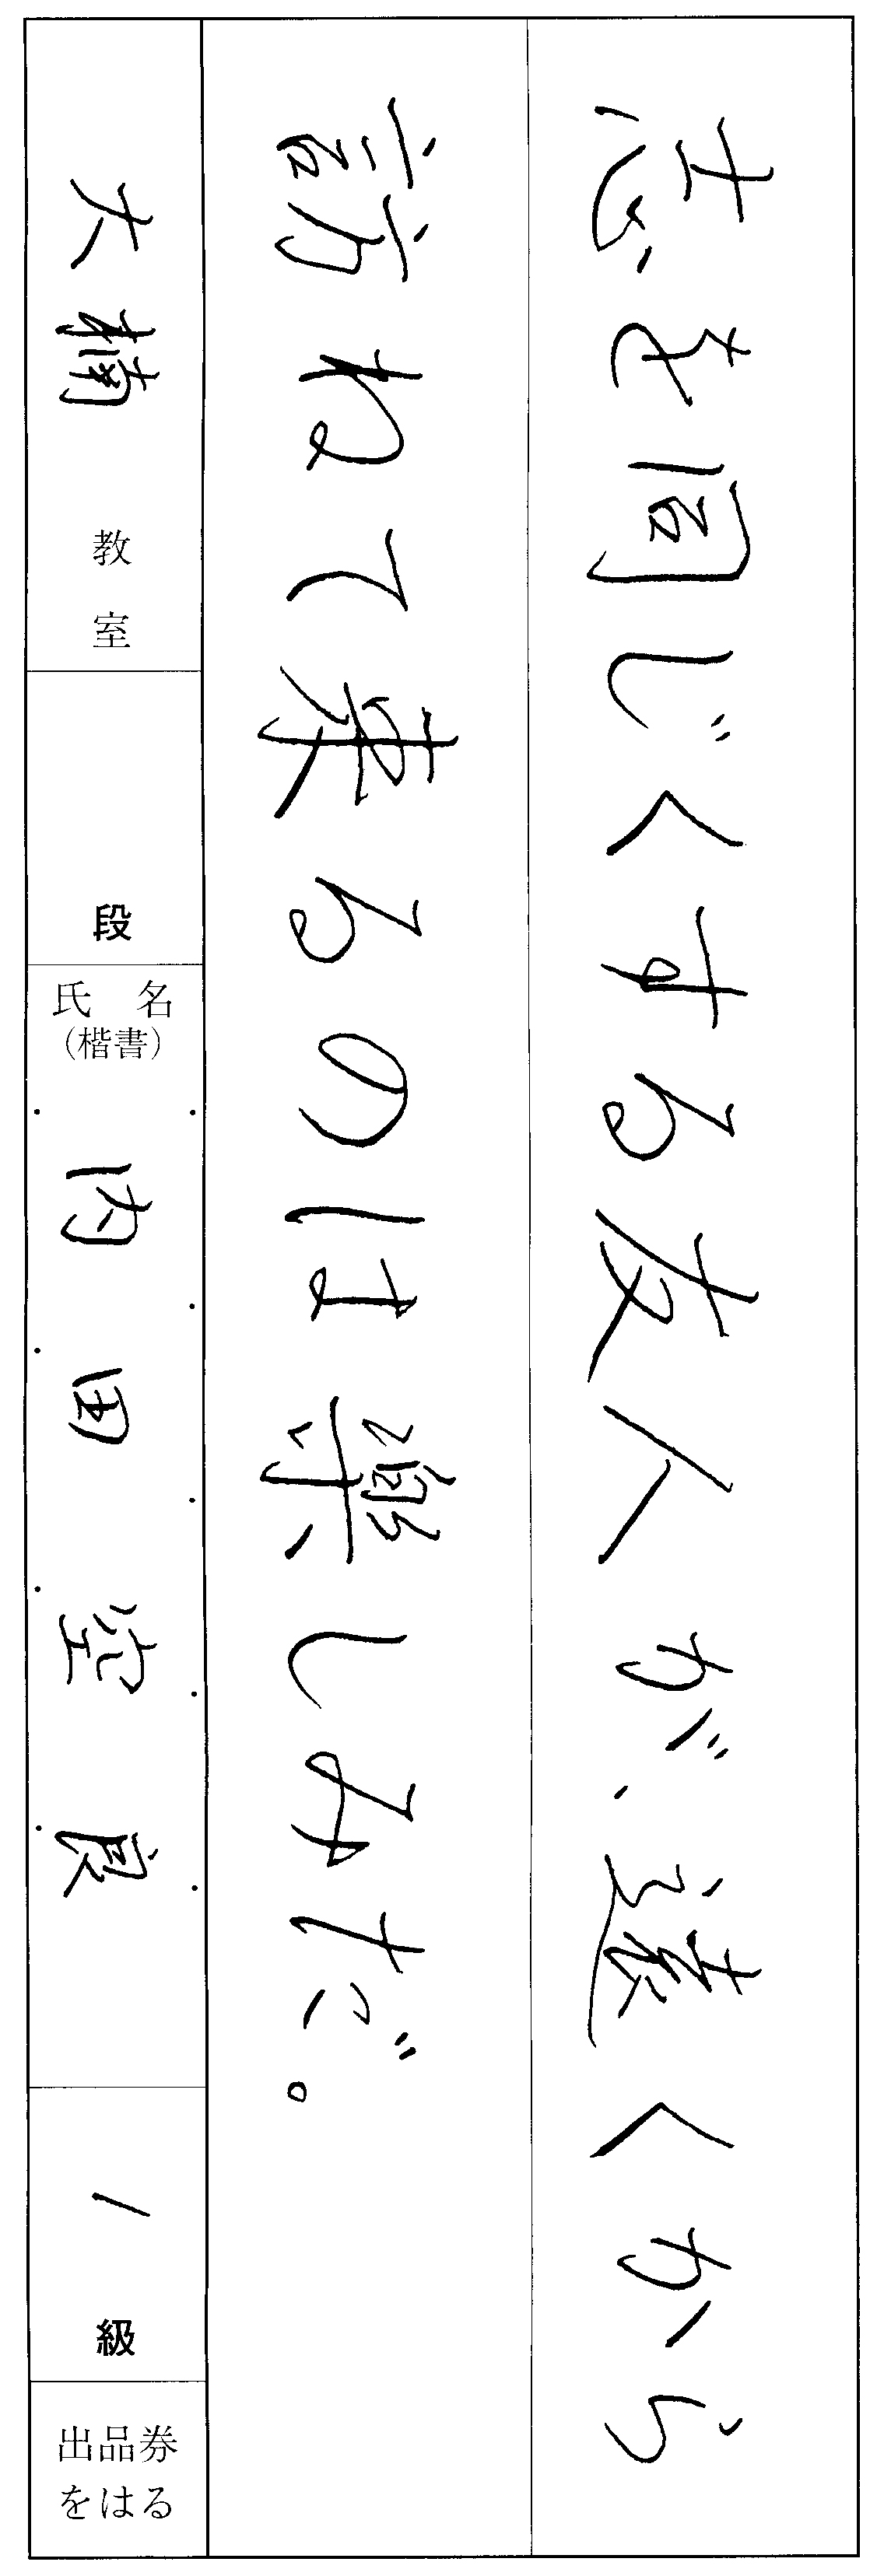 志を同じくする友人が、遠くから
訪ねて来るのは楽しみだ。
大楠 教室
段
氏名
(楷書)
内田空良
1級
出品券
をはる